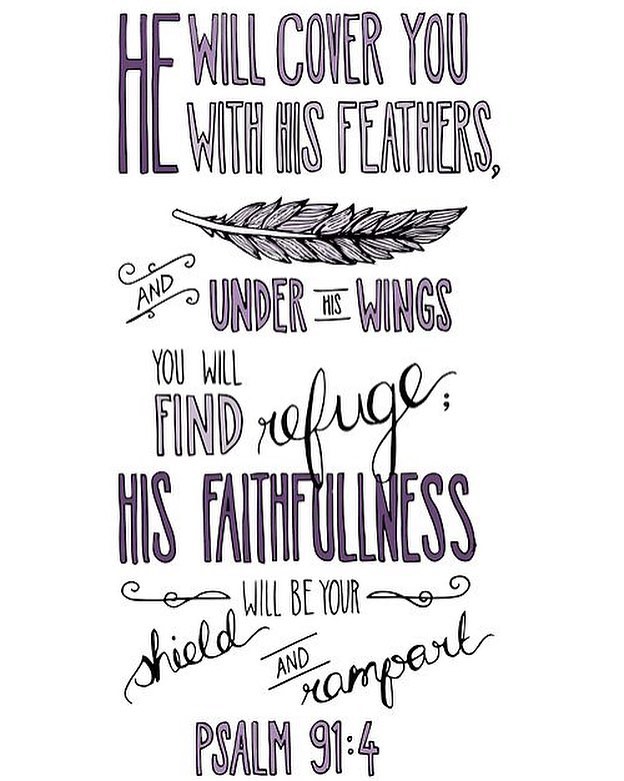 HE WILL COVER YOU
WITH HIS FEATHERS,
AND UNDER HIS WINGS
YOU WILL
FIND refuge;
HIS FAITHFULLNESS
WILL BE YOUR
shield AND rampart
PSALM 91:4